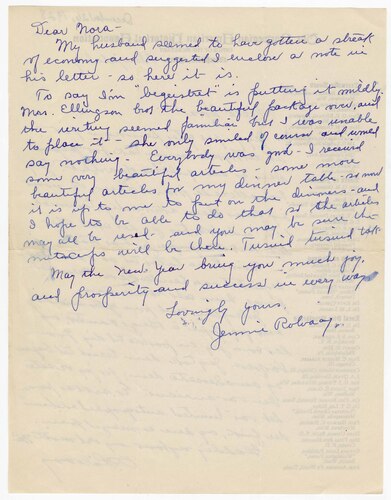 Dear Nora-
My husband seemed to have gotten a streak
of economy and suggested I enclose a note in
his letter - so here it is.
To say I'm "begeistret" is putting it mildly.
Mrs. Ellingson bro't the beautiful package over, and
the writing seemed familiar but I was unable
to place it - she only smiled of course and would
say nothing. Everybody was good - I received
some very beautiful articles - some more
beautiful articles for my dinner table - so now
it is up to me to put on the dinners - and
I hope to be able to do that so the articles
may all be used - and you may be sure the
nutcups will be there. Tusind tusind takk.
May the New Year bring you much joy,
and prosperity and success in every way
Lovingly yours,
Jennie Rolvaag.